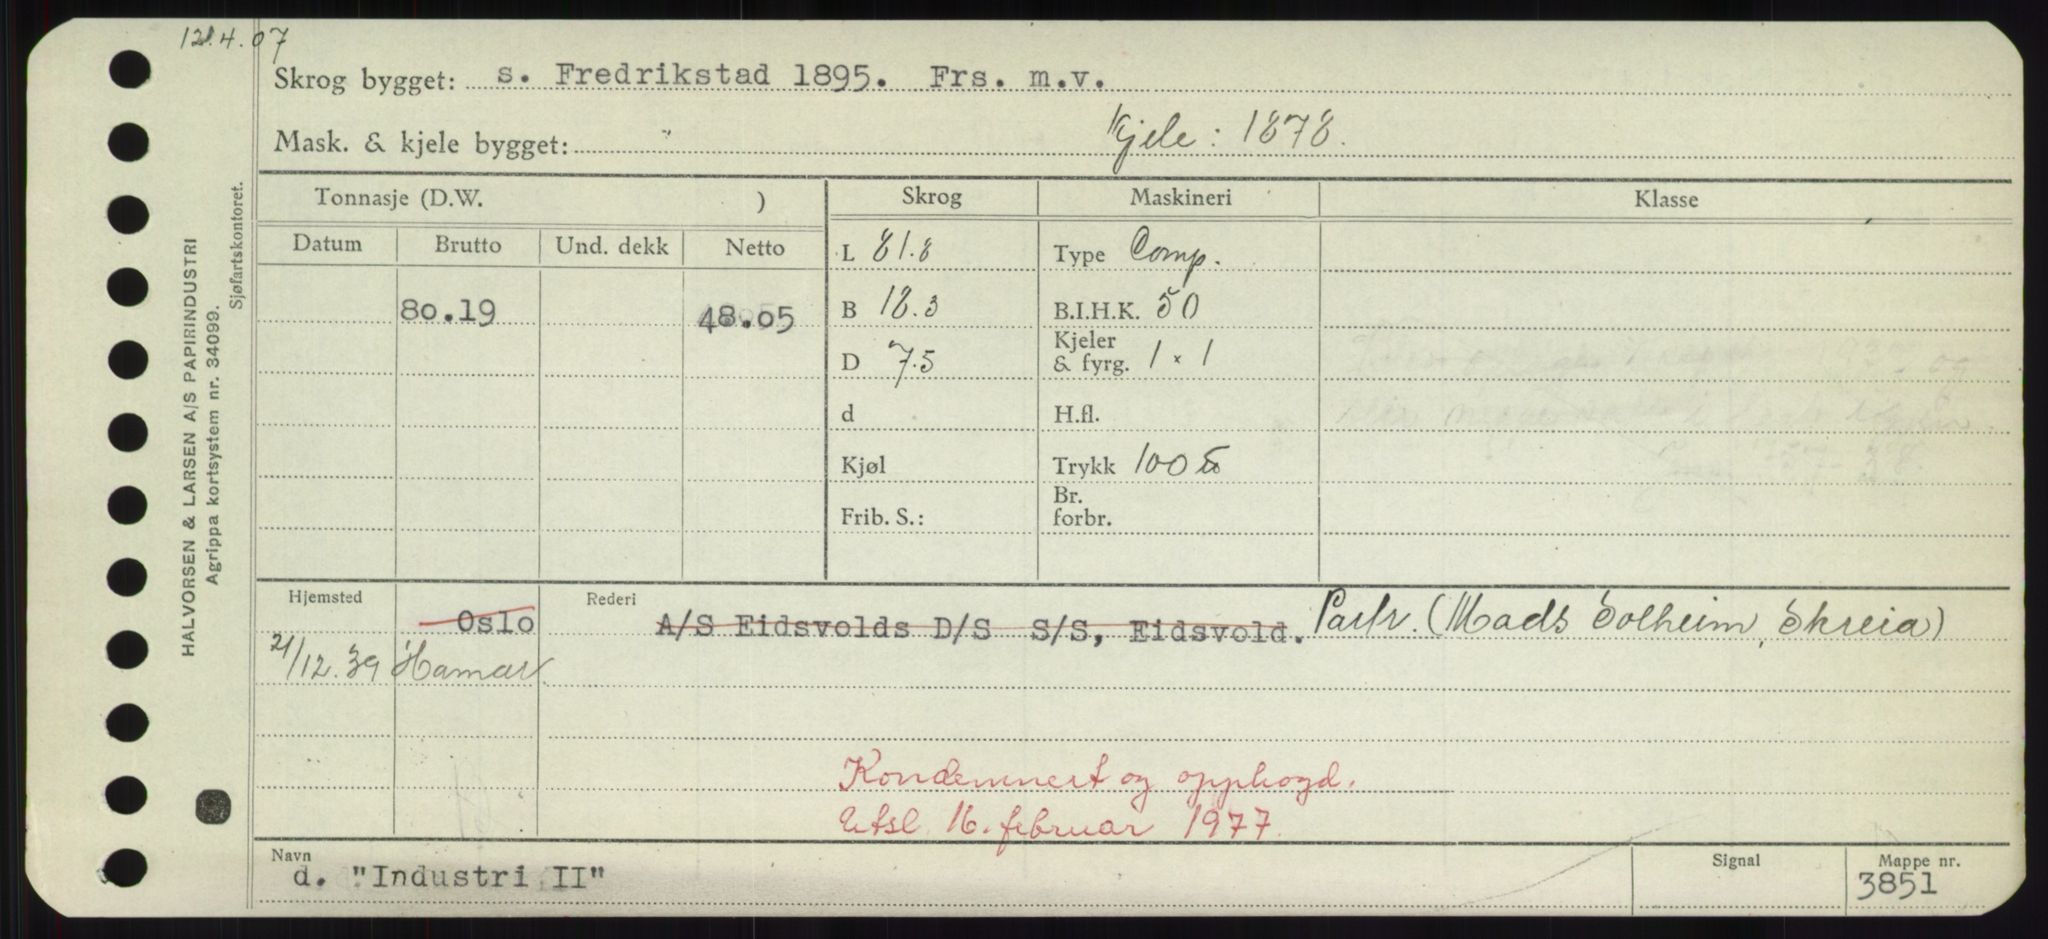 12.4.07
Skrog bygget: s. Fredrikstad 1895. Frs. m.v.
Mask. & kjele bygget: " Kjele: 1878.
Tonnasje (D.W. ) Skrog Maskineri Klasse
Datum Brutto Und. dekk Netto
L 81.8 Type Comp.
80.19 48.05 B 18.3 B.I.H.K. 50
D 7.5 Kjeler & fyrg. 1 × 1
d H.fl.
Kjøl Trykk 100
Frib. S.: Br. forbr.
Hjemsted Rederi
Oslo A/S Eidsvolds D/S S/S, Eidsvold. Partr. (Mads Solheim, Skreia)
21/12.39 Hamar
Kondemnert og opphogd.
Utsl. 16. februar 1977.
Navn Signal Mappe nr.
d. "Industri II" 3851
HALVORSEN & LARSEN A/S PAPIRINDUSTRI
Agrippa kortsystem nr. 34099.
Sjøfartskontoret.